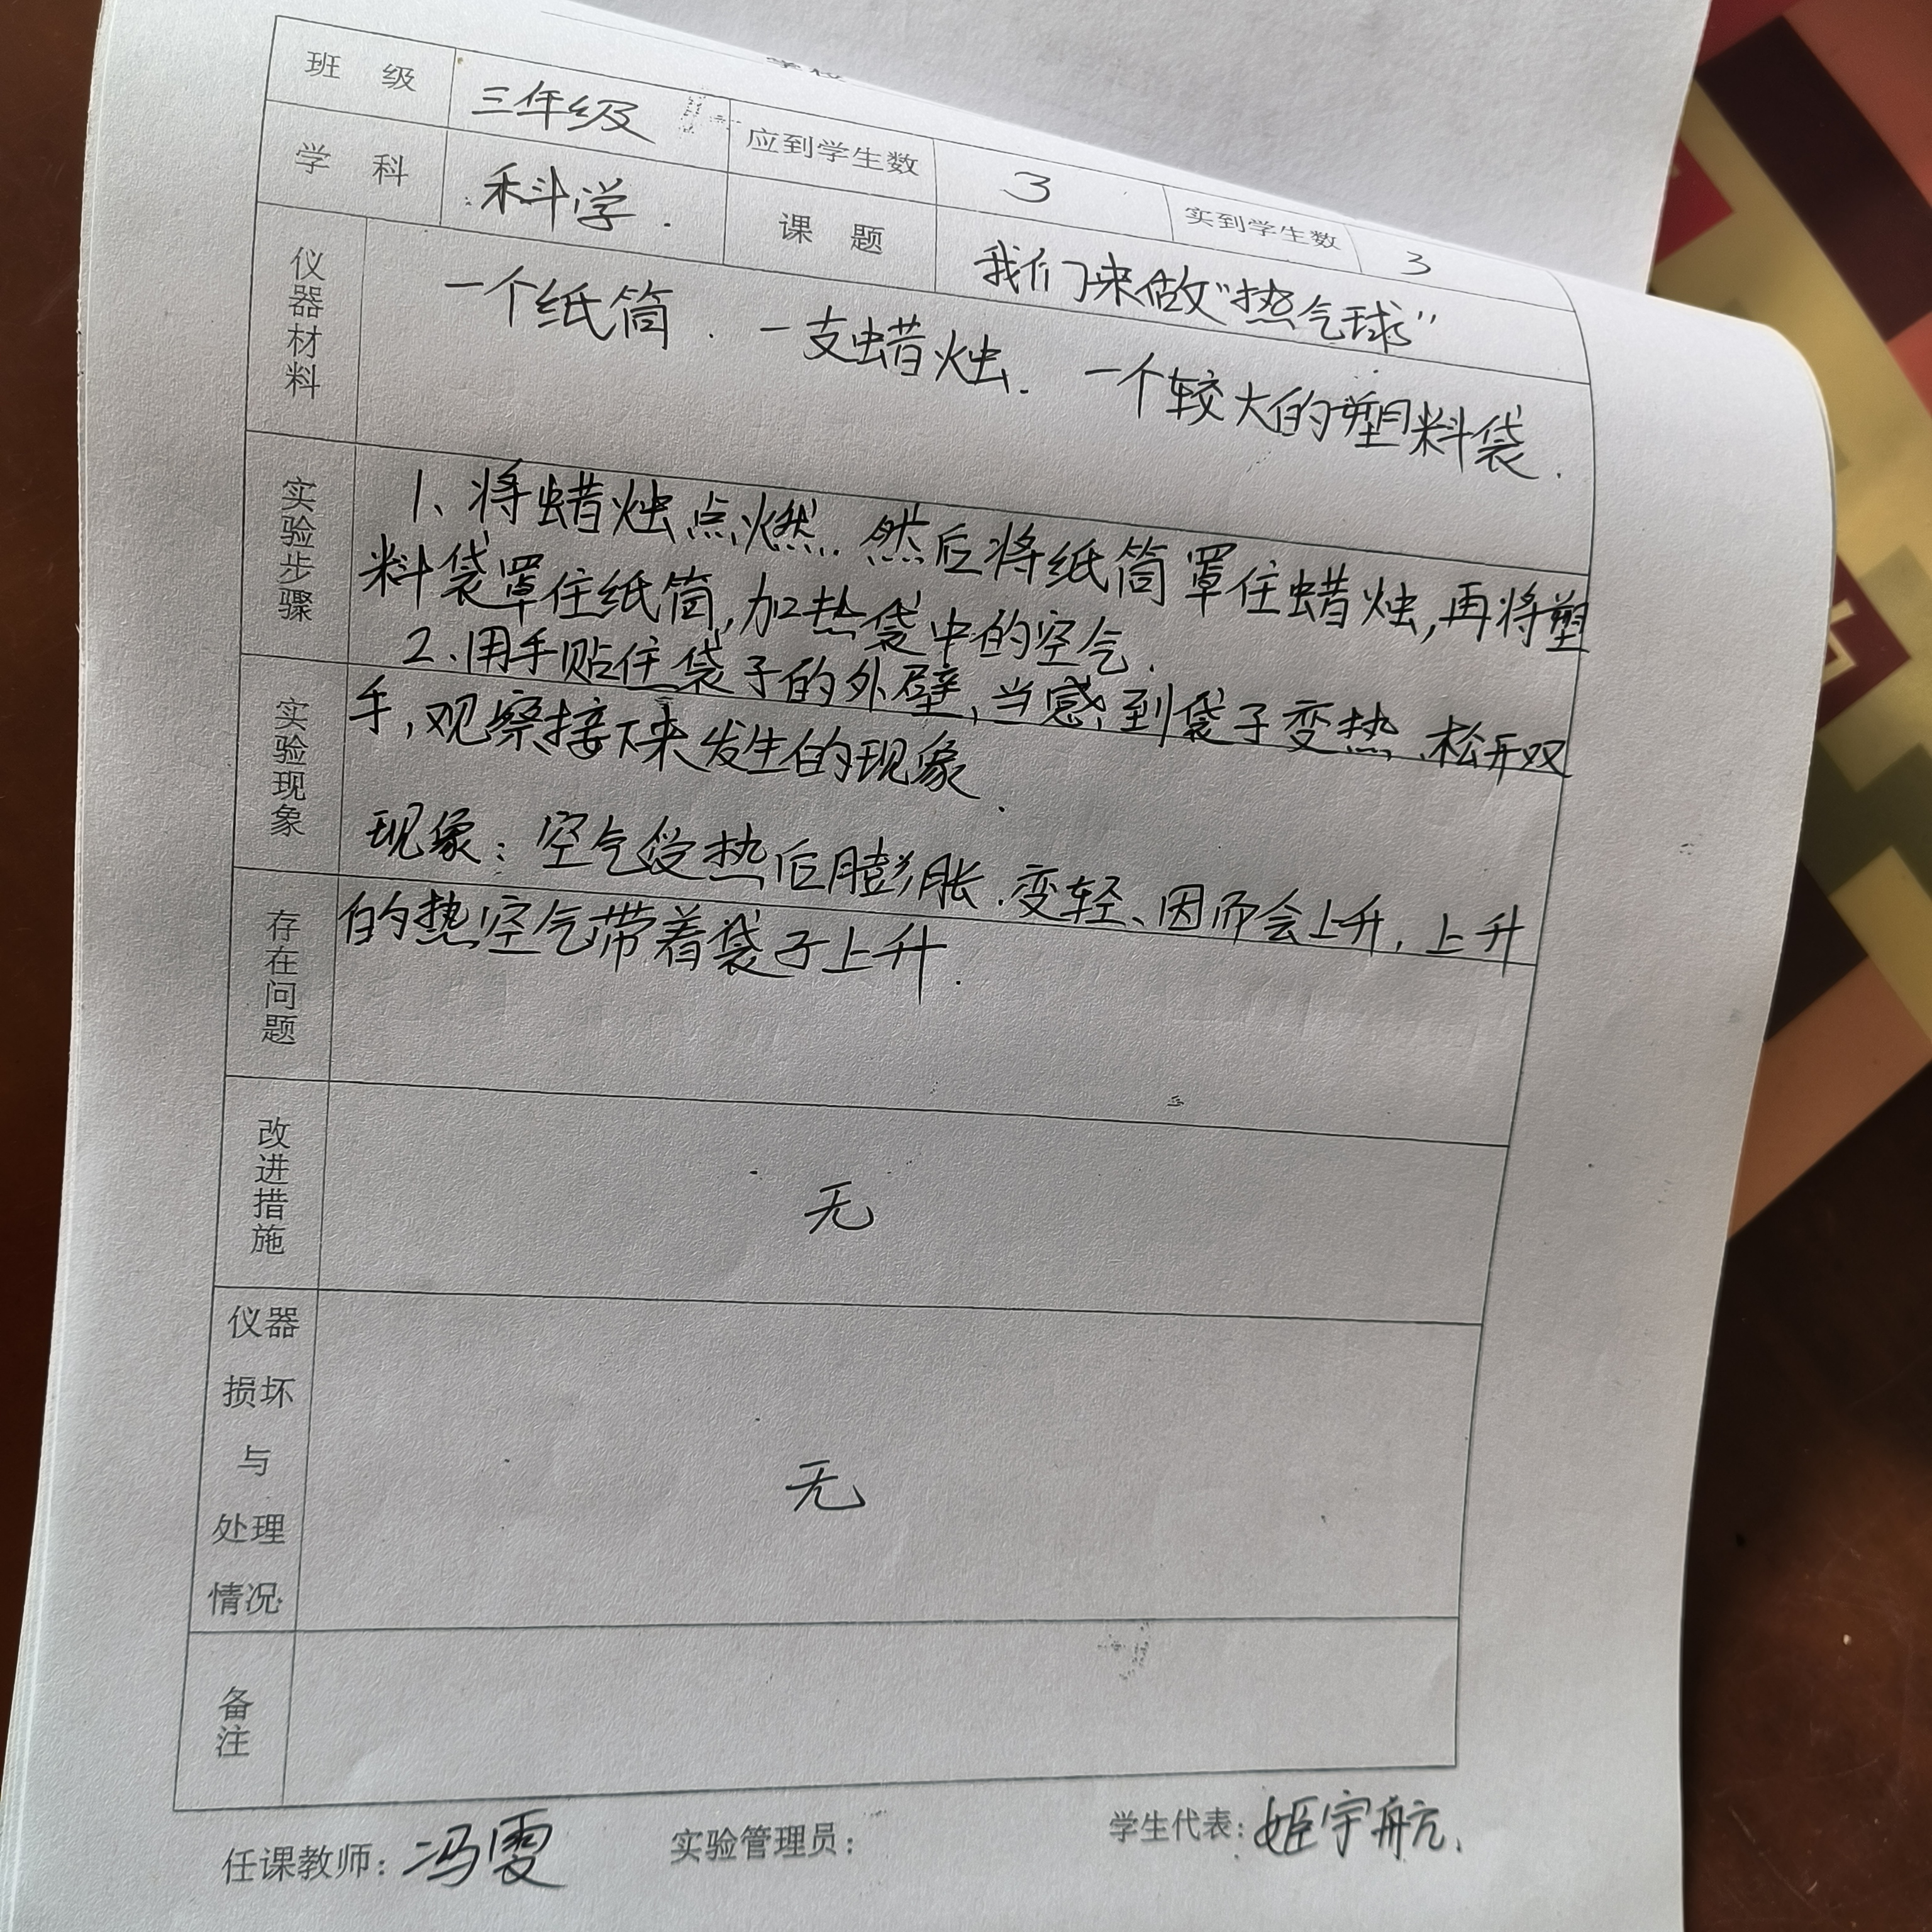 学校
班 级 三年级 应到学生数 3 实到学生数 3
学 科 科学. 课 题 我们来做“热气球”
仪器材料 一个纸筒. 一支蜡烛. 一个较大的塑料袋.
实验步骤
1、将蜡烛点燃. 然后将纸筒罩住蜡烛,再将塑
料袋罩住纸筒,加热袋中的空气.
2、用手贴住袋子的外壁,当感到袋子变热、松开双
实验现象
手,观察接下来发生的现象.
现象:空气受热后膨胀.变轻、因而会上升,上升
存在问题
的热空气带着袋子上升.
改进措施 无
仪器
损坏
与
处理
情况
无
备注
任课教师:冯雯 实验管理员: 学生代表:姬宇航.